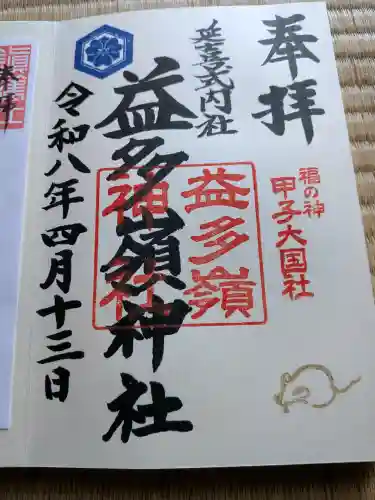 奉拝
福の神
甲子大国社
延喜式内社
益多嶺神社
益多嶺
神社
令和八年四月十三日
奉拝